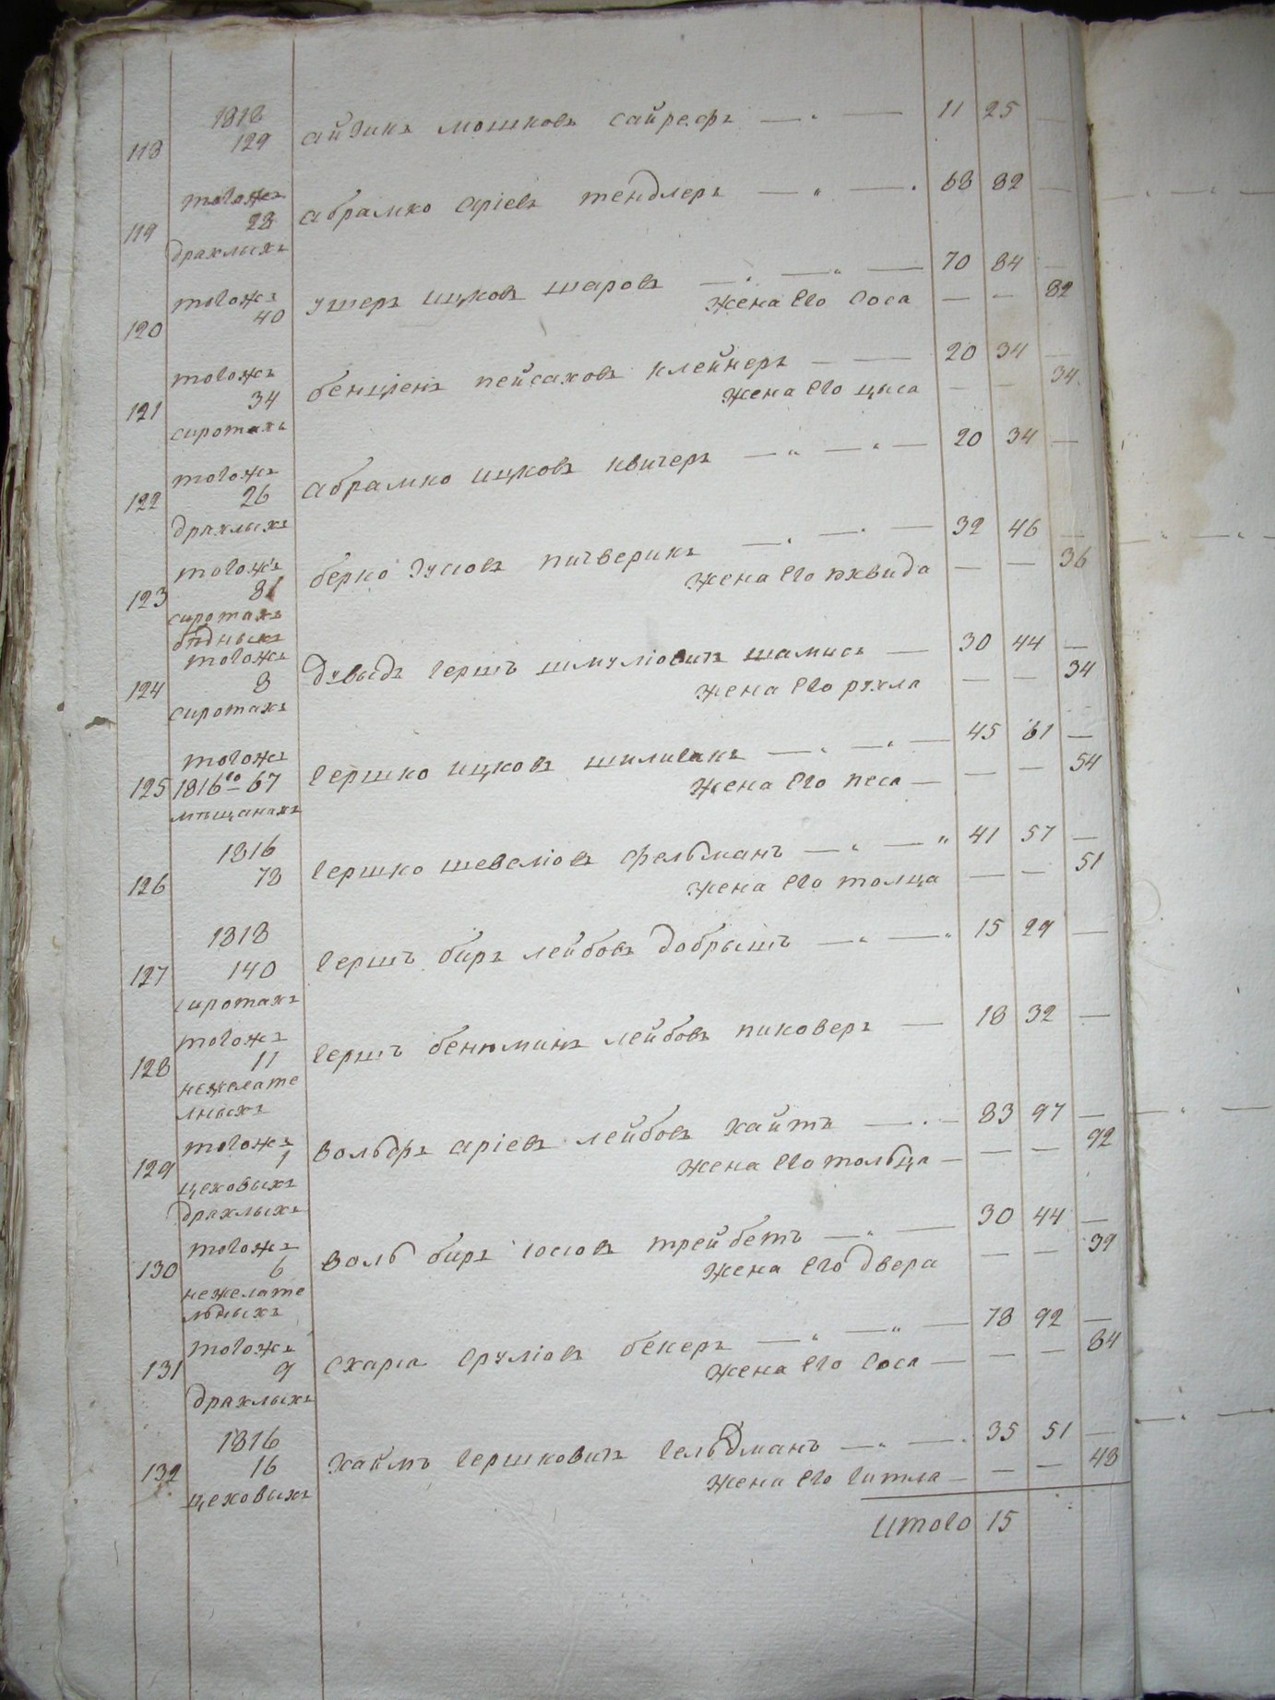 1818
118 129 айзикъ мошковъ сайрефъ — „ — 11 25 —
тогожъ
119 28 абрамко аріевъ тендлеръ — „ — 68 82 —
драхлыхъ
тогожъ
120 40 ушеръ ицковъ шаровъ — „ — „ — 70 84 —
жена его сося — — 82
тогожъ
121 34 бенціенъ пейсаховъ клейнеръ — — 20 34 —
жена его цыса — — 34
сиротахъ
тогожъ
122 26 абрамко ицковъ квичеръ — „ — „ — 20 34 —
драхлыхъ
тогожъ
123 81 берко зусіовъ пичверикъ — „ — „ — 32 46 —
жена его юхвида — — 36
сиротахъ
бѣдныхъ
тогожъ
124 8 давыдъ гершъ шмуліовичъ шамисъ — 30 44 —
жена его рухля — — 34
сиротахъ
тогожъ
125 1816го 67 гершко ицковъ шилиганъ — „ — „ — 45 61 —
жена его песя — — — 54
мѣщанахъ
1816
126 78 гершко шевеліовъ фельманъ — „ — „ 41 57 —
жена его толца — — 51
1818
127 140 гершъ беръ лейбовъ добрышъ — „ — „ 15 29 —
сиротахъ
тогожъ
128 11 гершъ бенюминъ лейбовъ пиковеръ — 18 32 —
нежелате
лныхъ
тогожъ
129 1 вольфъ аріевъ лейбовъ хаитъ — „ — 83 97 —
жена его тольца — — — 92
цеховыхъ
драхлыхъ
тогожъ
130 6 воль беръ іосіовъ трейбетъ — „ — 30 44 —
жена его двера — — 39
нежелате
льныхъ
тогожъ
131 9 схарія сруліовъ бекеръ — „ — „ — 78 92 —
жена его сося — — — 84
драхлыхъ
1816
132 16 хаимъ гершковичъ гельдманъ — „ — „ 35 51 —
жена его гитля — — — 48
цеховыхъ
Итого 15